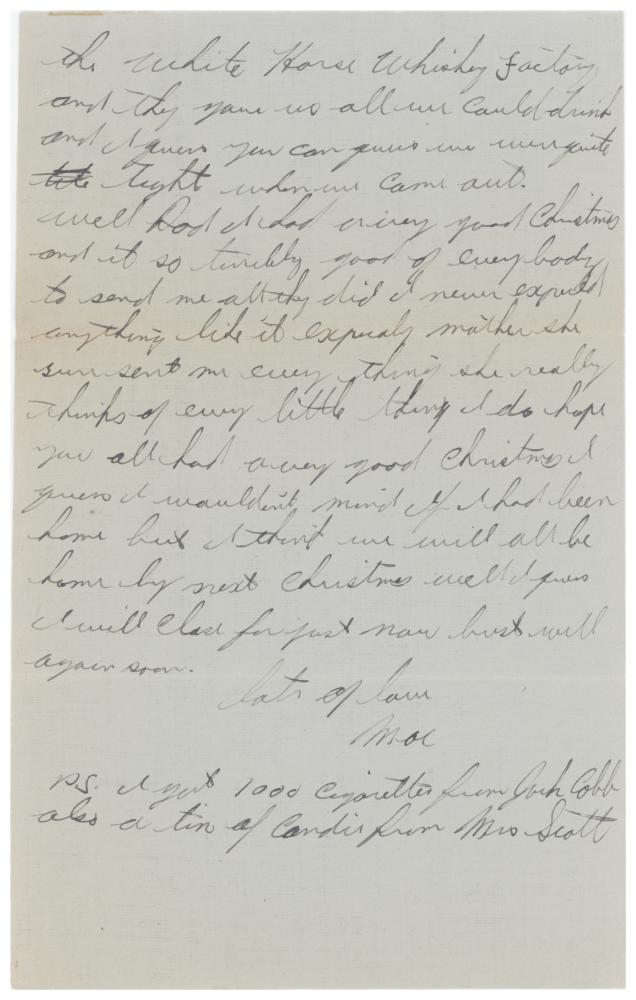 the White Horse Whiskey Factory
and they gave us all we could drink
and I guess you can guess we were quite
tight when we came out.
well Dad I had a very good Christmas
and it so terribly good of every body
to send me all they did I never expected
anything like it expecialy mother she
sure sent me every thing she really
thinks of every little thing I do hope
you all had a very good Christmas I
guess I wouldn't mind if I had been
home but I think we will all be
home by next Christmas well I guess
I will close for just now but will
again soon.
lots of love
Moe
P.S. I got 1000 cigarettes from Jack Cobb
also a tin of candie from Mrs Scott